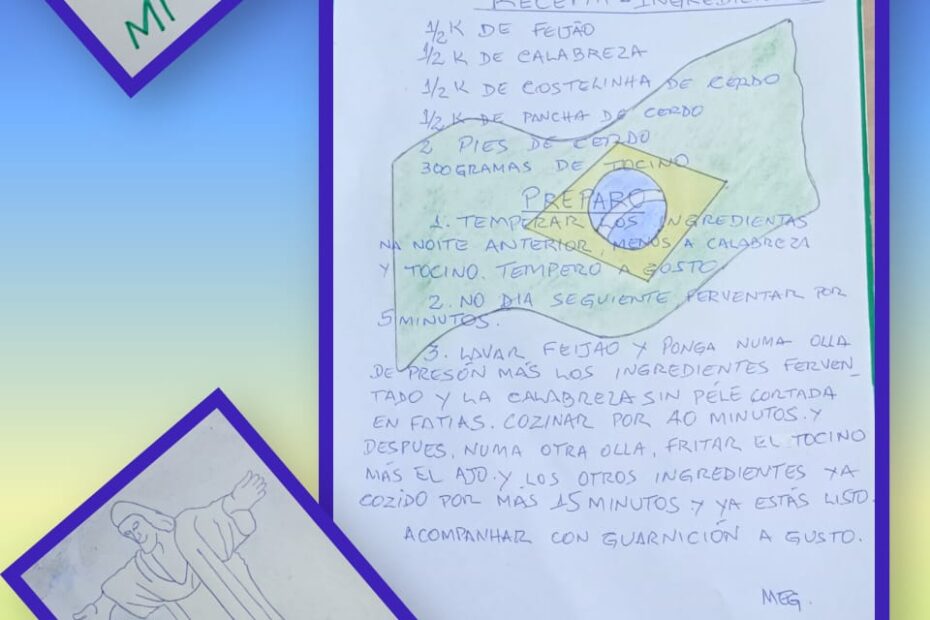 MI
RECETA - INGREDIENTES
1/2 K DE FEIJÃO
1/2 K DE CALABREZA
1/2 K DE COSTELINHA DE CERDO
1/2 K DE PANCHA DE CERDO
2 PIES DE CERDO
300 GRAMAS DE TOCINO
PREPARO
1. TEMPERAR LOS INGREDIENTAS
NA NOITE ANTERIOR, MENOS A CALABREZA
Y TOCINO. TEMPERO A GOSTO
2. NO DIA SEGUINTE, FERVENTAR POR
5 MINUTOS.
3. LAVAR FEIJAO Y PONGA NUMA OLLA
DE PRESÓN MÁS LOS INGREDIENTES FERVEN_
TADO Y LA CALABREZA SIN PÉLE CORTADA
EN FATIAS. COZINAR POR 40 MINUTOS. Y
DESPUES, NUMA OTRA OLLA, FRITAR EL TOCINO
MÁS EL AJO. Y LOS OTROS INGREDIENTES YA
COZIDO POR MAS 15 MINUTOS Y YA ESTÁS LISTO.
ACOMPANHAR CON GUARNICIÓN A GUSTO.
MEG.